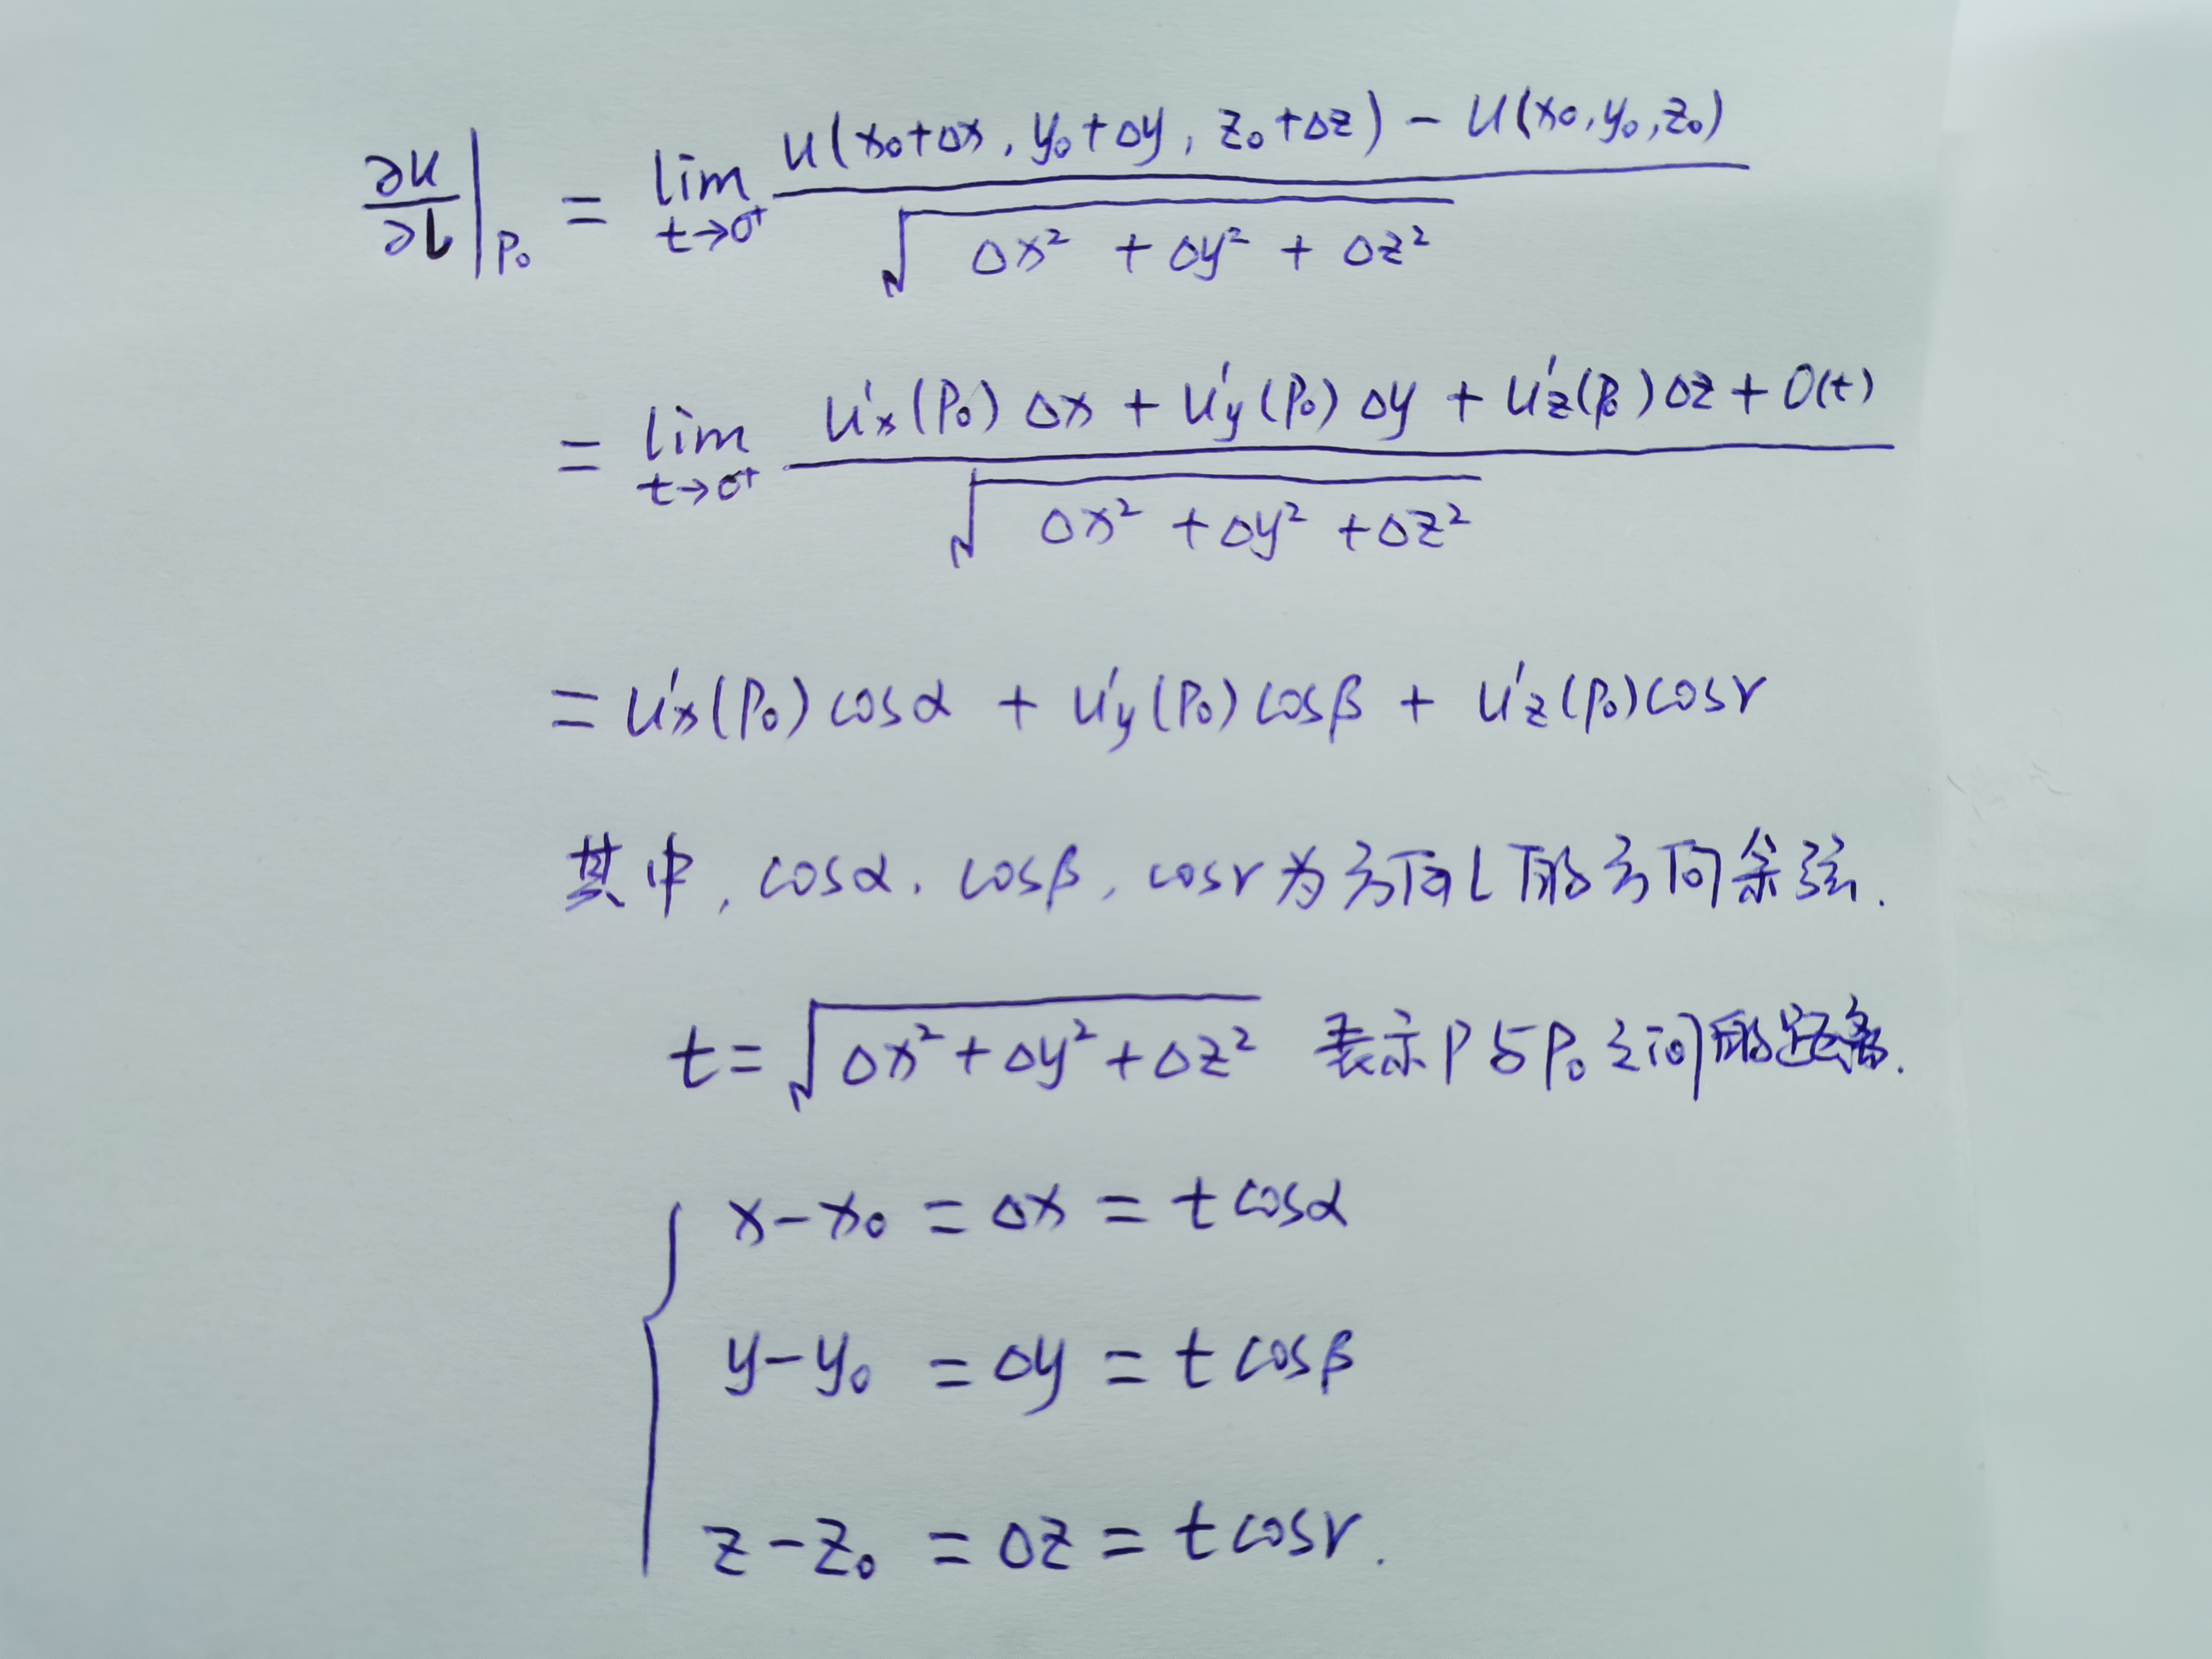 ∂u/∂l|P₀ = lim t→0⁺ u(x₀+Δx, y₀+Δy, z₀+Δz) − u(x₀, y₀, z₀) / √(Δx² + Δy² + Δz²)
= lim t→0⁺ u'x(P₀)Δx + u'y(P₀)Δy + u'z(P₀)Δz + o(t) / √(Δx² + Δy² + Δz²)
= u'x(P₀)cosα + u'y(P₀)cosβ + u'z(P₀)cosγ
其中, cosα, cosβ, cosγ为方向l的方向余弦.
t = √(Δx² + Δy² + Δz²) 表示P与P₀之间的距离.
x − x₀ = Δx = t cosα
y − y₀ = Δy = t cosβ
z − z₀ = Δz = t cosγ.